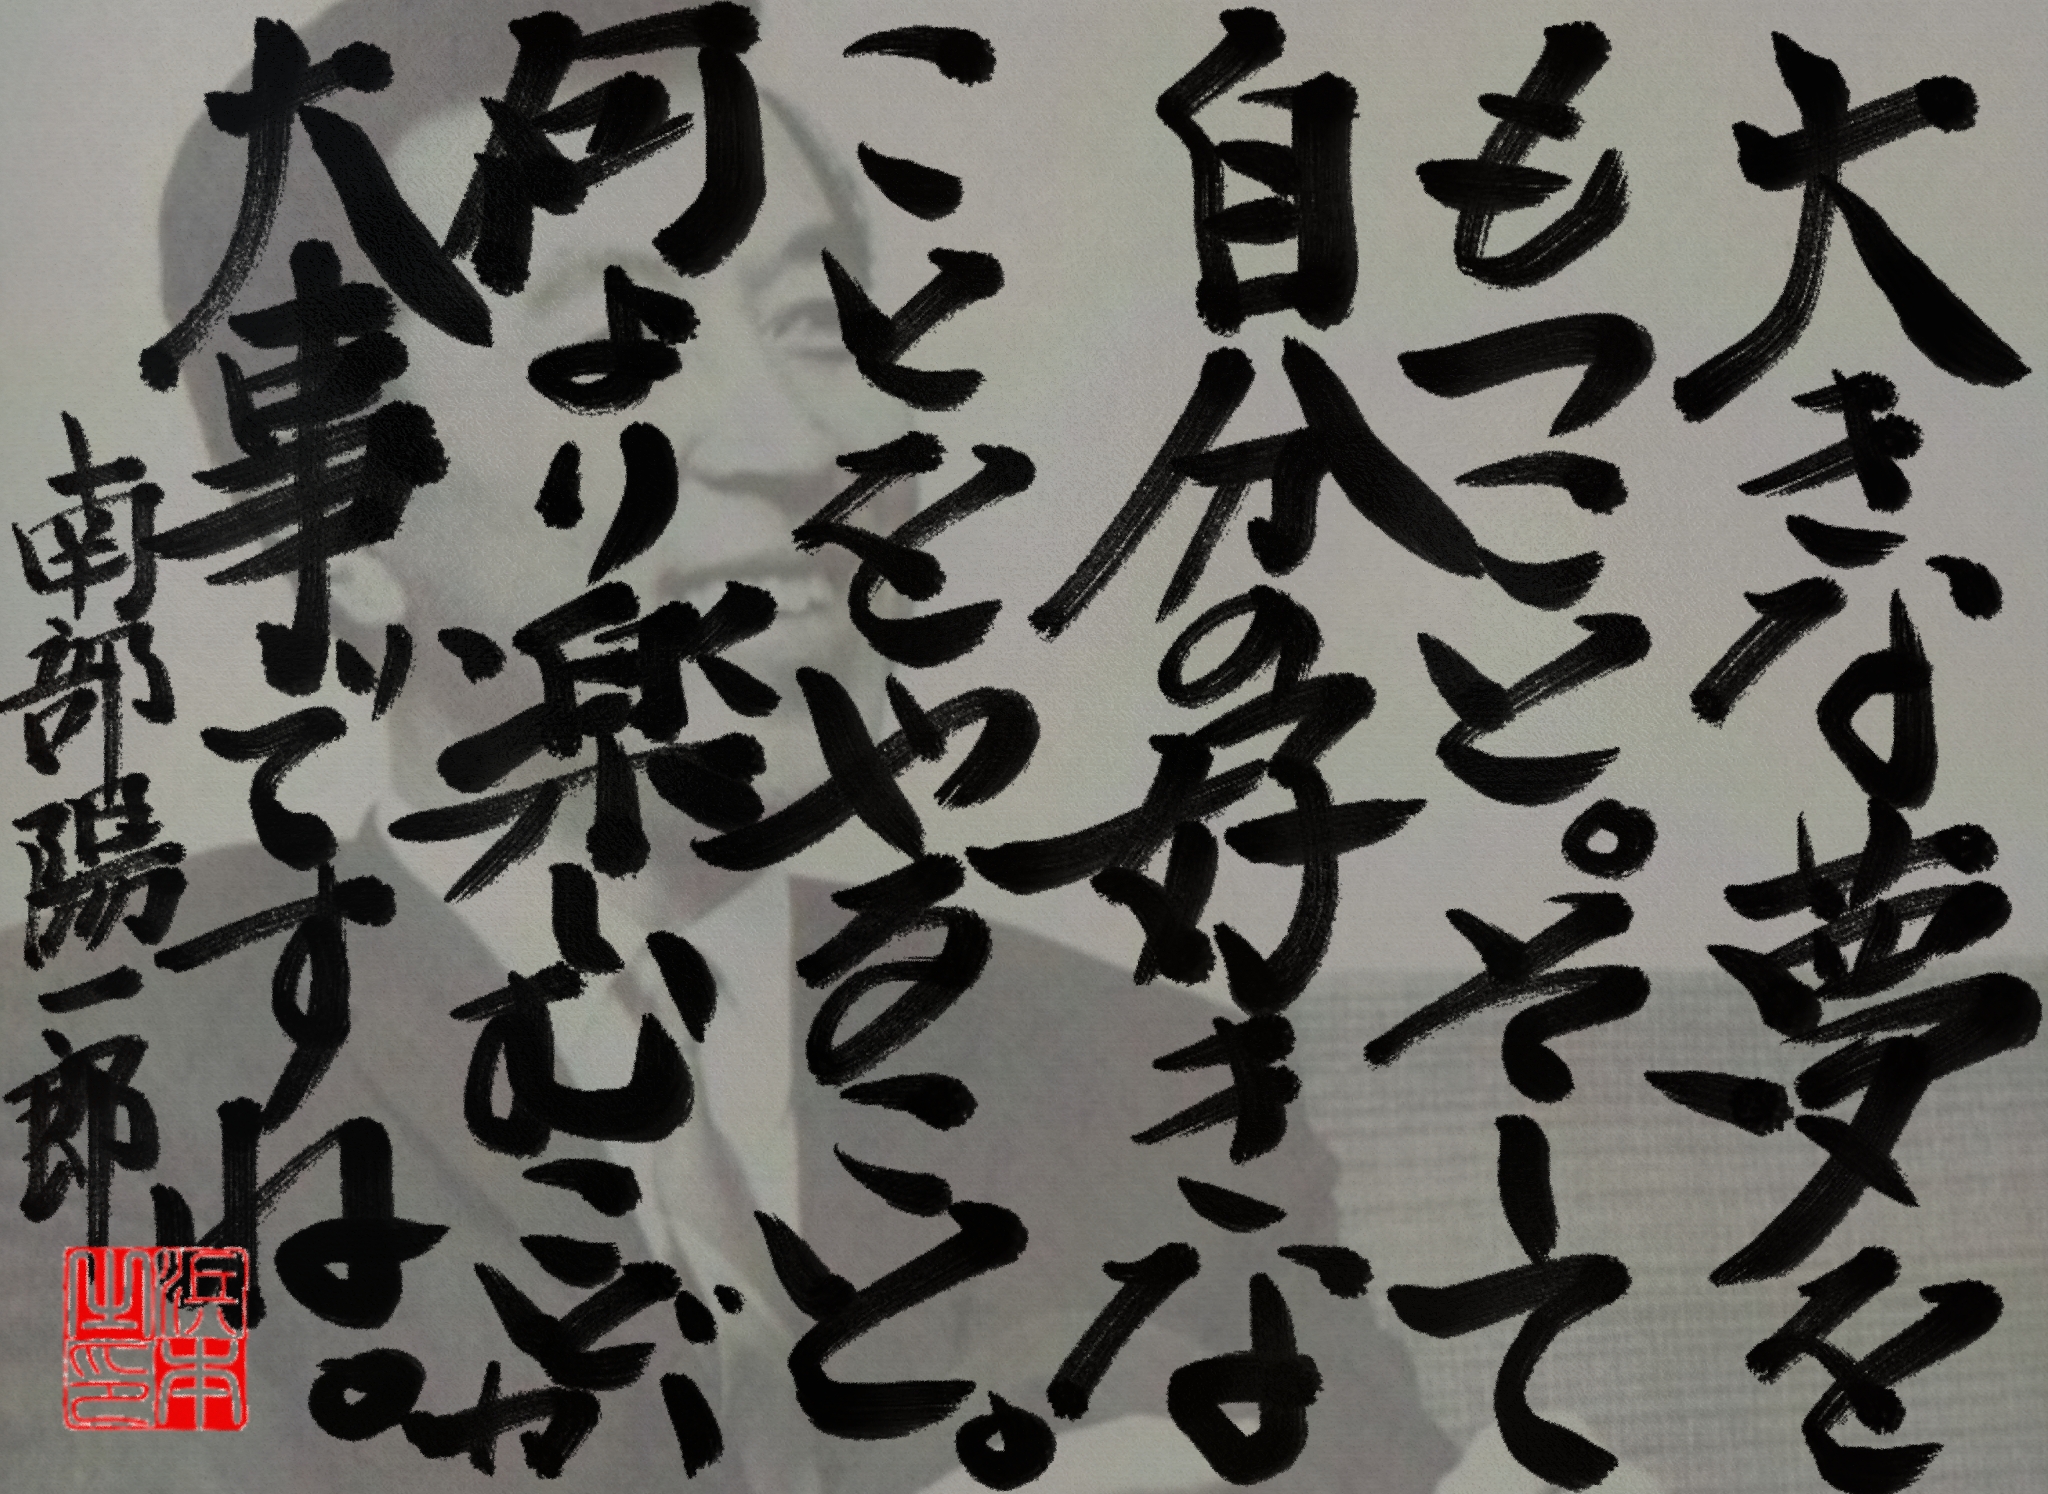 大きな夢を
もつこと。そして
自分の好きな
ことをやること。
何より楽しむことが
大事ですね。
南部陽一郎
浜本
之印